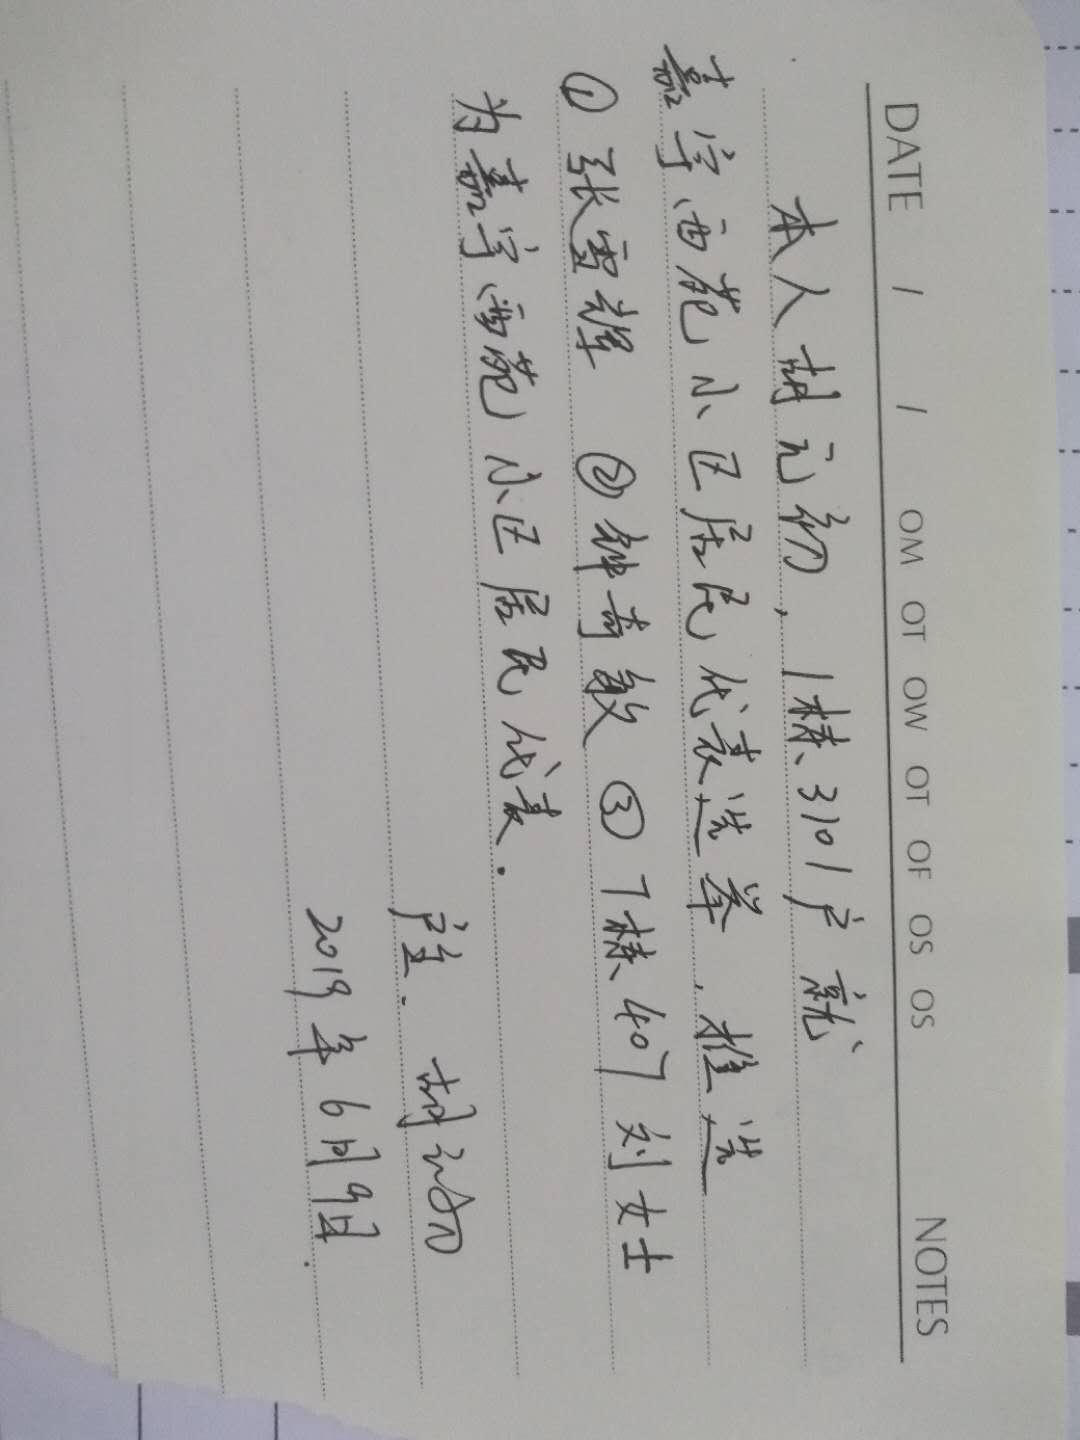 DATE / / OM OT OW OT OF OS OS NOTES
本人胡元初，1栋3101户就
嘉宇西苑小区居民代表选举，推选
①张雷辉 ②钟奇敏 ③7栋407刘女士
为嘉宇西苑小区居民代表.
户主. 胡元初
2019年6月9日.